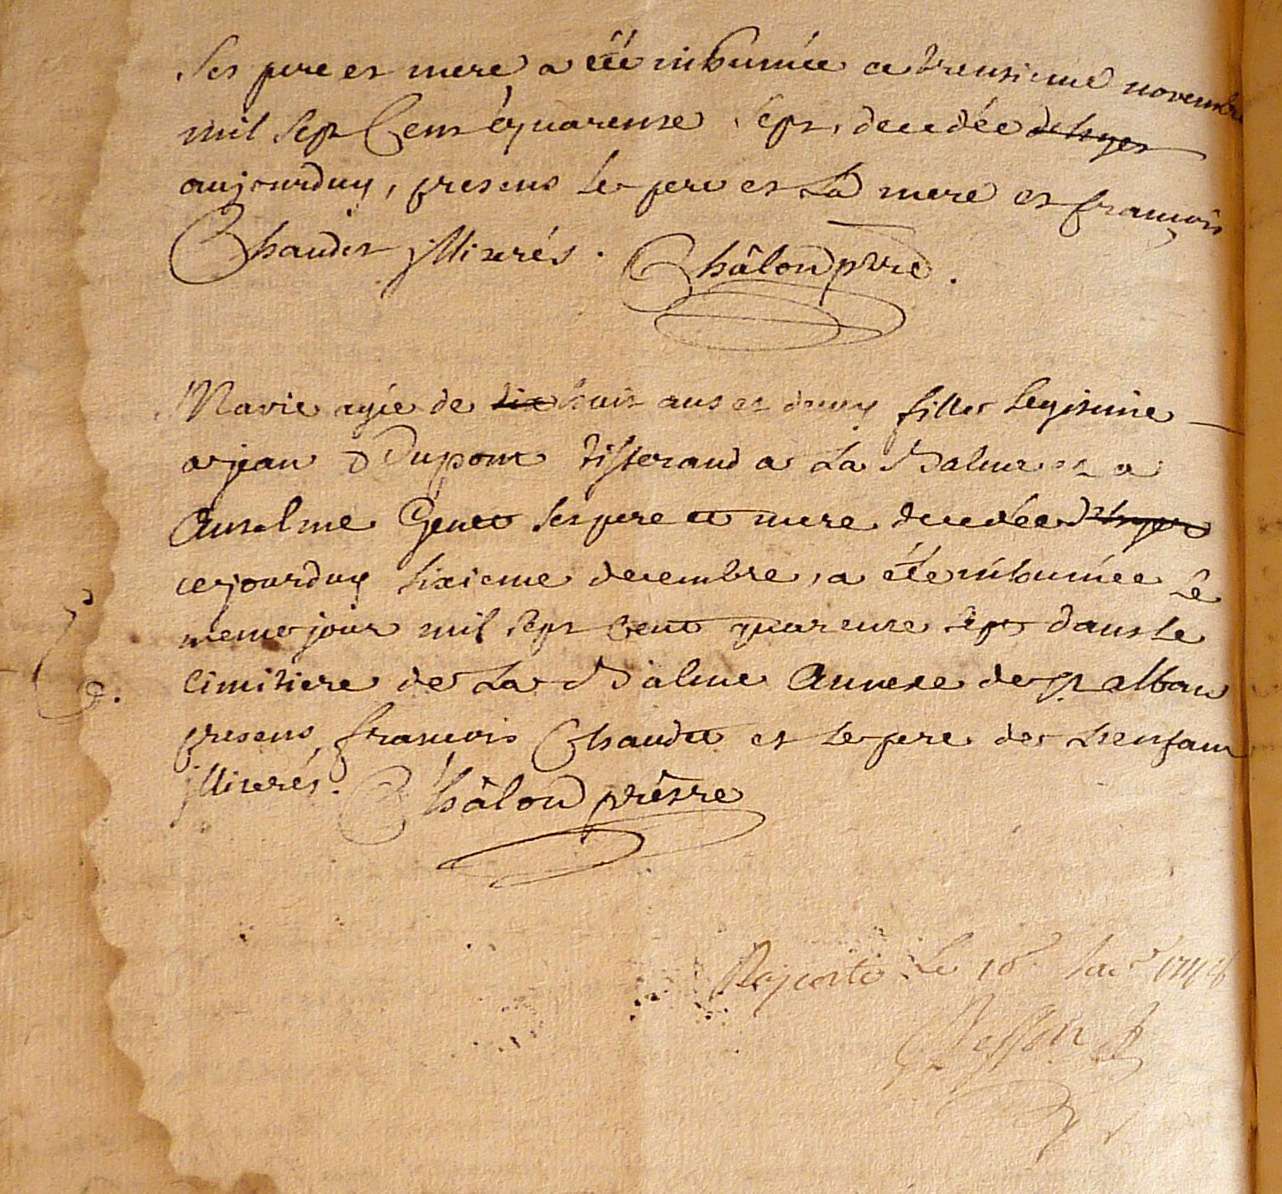 ses pere et mere a été inhumée ce trensieme novembre
mil sept Cent quarense sept, decedée dehyer
aujourduy, presens le pere et La mere et françois
Chaudet illiterés. Châlon ptre.
Marie agée de dix huit ans et demy fille legitime
a jean Dupont tisserand a La Balme et a
Anselme Genet ses pere et mere decedée dehyer
cejourduy sixieme decembre, a été inhumée Le
meme jour mil sept Cent quarense sept dans le
Cimitiere de La Balme Annexe de St alban
presens françois Chaudet et le pere de L'enfant
illiterés. Châlon prêtre
Raporté Le 16 1748
Besson